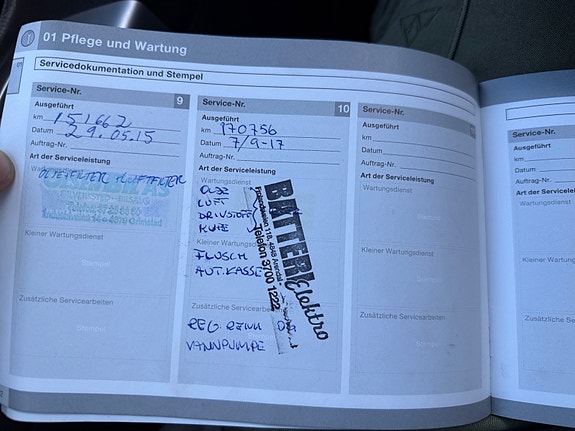 01 Pflege und Wartung
Servicedokumentation und Stempel
Service-Nr. 9
Ausgeführt
km 151662
Datum 29.05.15
Auftrag-Nr.
Art der Serviceleistung
Kleiner Wartungsdienst
Stempel
Zusätzliche Servicearbeiten
Stempel
Service-Nr. 10
Ausgeführt
km 170756
Datum 7/9-17
Auftrag-Nr.
Art der Serviceleistung
OLJE
LUFT
DRIVSTOFF
KUPE
Kleiner Wartungsdienst
FLUSCH
AUT.KASSE
Zusätzliche Servicearbeiten
REG. REIM OG
VANNPUMPE
BATTERI Elektro
Telefon 3700 1222
Service-Nr.
Ausgeführt
km
Datum
Auftrag-Nr.
Art der Serviceleistung
Wartungsdienst
Stempel
Kleiner Wartungsdienst
Stempel
Zusätzliche Servicearbeiten
Stempel
Service-Nr.
Ausgeführt
km
Datum
Auftrag-Nr.
Art der Serviceleis
Wartungsdienst
Kleiner Wartungsd
Zusätzliche Servi